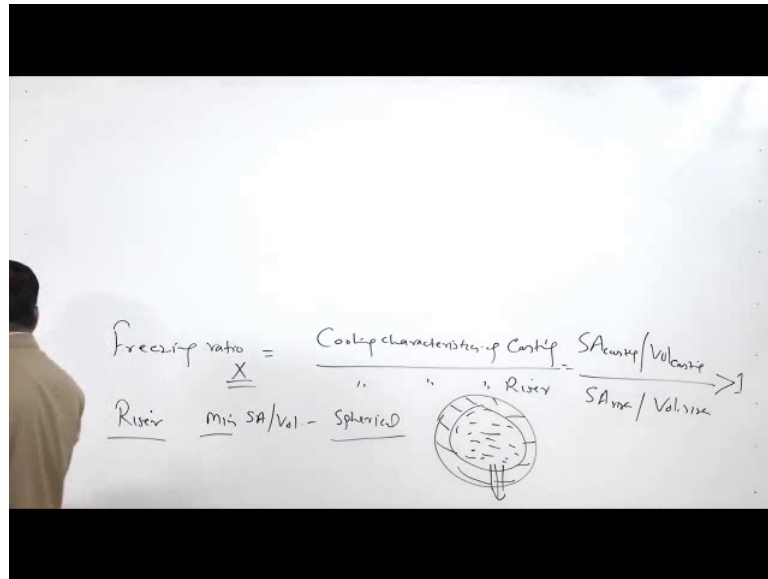 Freezing ratio = Cooling characteristics of Casting = SA casting / Vol casting > 1
X " " " Riser SA riser / Vol. riser
Riser Min SA/Vol. - Spherical